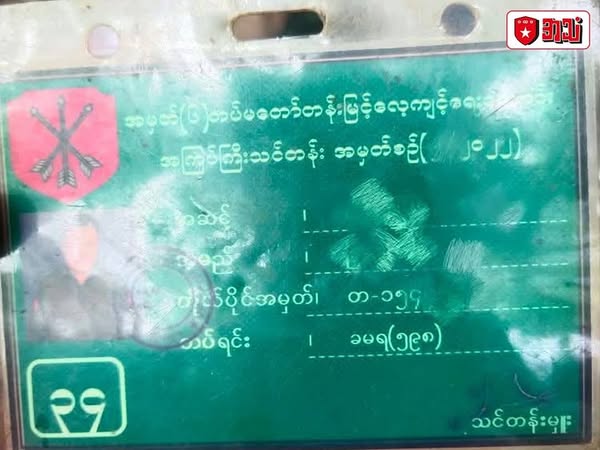 အသံ
အမှတ်(၆)တပ်မတော်တန်းမြင့်လေ့ကျင့်ရေး
အကြပ်ကြီးသင်တန်း အမှတ်စဉ်( ၂၀၂၂)
အဆင့် ၊
အမည် ၊
ကိုယ်ပိုင်အမှတ်၊ တ-၁၅၄
တပ်ရင်း ၊ ခမရ(၅၉၈)
၃၄
သင်တန်းမှူး